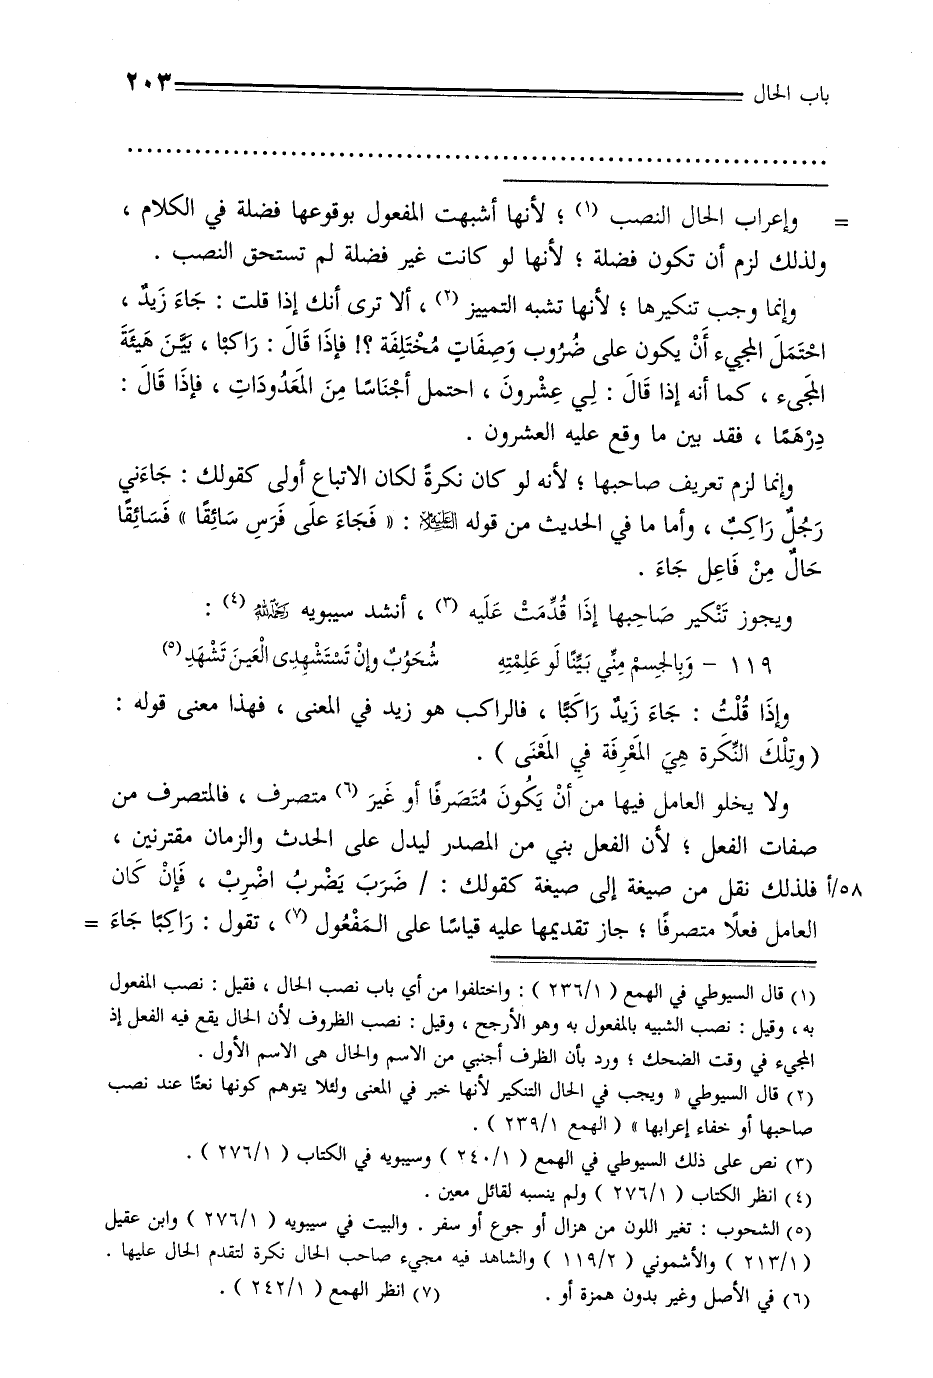 باب الحال ٢٠٣
= وإعراب الحال النصب (١) ؛ لأنها أشبهت المفعول بوقوعها فضلة في الكلام ،
ولذلك لزم أن تكون فضلة ؛ لأنها لو كانت غير فضلة لم تستحق النصب .
وإنما وجب تنكيرها ؛ لأنها تشبه التمييز (٢) ، ألا ترى أنك إذا قلت : جَاءَ زَيدٌ ،
احْتَمَلَ المجِيء أَنْ يكون على ضُرُوب وَصِفَاتٍ مُخْتَلِفَة ؟! فإذَا قَالَ : رَاكبًا ، بَيَّنَ هَيئَةَ
المَجَىء ، كما أنه إذا قَالَ : لِي عِشْرونَ ، احتمل أجْنَاسًا مِنَ المَعَدُودَاتِ ، فإذَا قَالَ :
دِرْهَمًا ، فقد بين ما وقع عليه العشرون .
وإنما لزم تعريف صاحبها ؛ لأنه لو كان نكرةً لكان الاتباع أولى كقولك : جَاءَني
رَجُلٌ رَاكِبٌ ، وأما ما في الحديث من قوله العَلَيْهِ السَّلَام : « فَجَاءَ عَلَى فَرَسٍ سَائِقًا » فَسَائِقًا
حَالٌ مِنْ فَاعِل جَاءَ .
ويجوز تَنْكير صَاحِبها إذَا قُدِّمَتْ عَلَيه (٣) ، أنشد سيبويه رَحِمَهُ اللَّهُ (٤) :
١١٩ - وَبِالجِسمْ مِنِّي بَيِّنًا لَو عَلِمْتِهِ شُحَوُبٌ وإنْ تَسْتَشْهِدِى الْعَينَ تَشْهَدِ (٥)
وإذَا قُلْتُ : جَاءَ زَيدٌ رَاكبًا ، فالراكب هو زيد في المعنى ، فهذا معنى قوله :
( وتِلْكَ النَّكرة هِيَ المَعْرِفَة فيِ المَعْنَى ) .
ولا يخلو العامل فيها من أنْ يَكُونَ مُتَصَرفًا أو غَيرَ (٦) متصرف ، فالمتصرف من
صفات الفعل ؛ لأن الفعل بني من المصدر ليدل على الحدث والزمان مقترنين ،
٥٨/أ فلذلك نقل من صيغة إلى صيغة كقولك : / ضَرَبَ يَضْربُ اضْرِبْ ، فَإنْ كَان
العامل فعلًا متصرفًا ؛ جاز تقديمها عليه قياسًا على المَفْعُول (٧) ، تقول : رَاكِبًا جَاءَ =
(١) قال السيوطي في الهمع ( ٢٣٦/١ ) : واختلفوا من أي باب نصب الحال ، فقيل : نصب المفعول
به ، وقيل : نصب الشبيه بالمفعول به وهو الأرجح ، وقيل : نصب الظروف لأن الحال يقع فيه الفعل إذ
المجيء في وقت الضحك ؛ ورد بأن الظرف أجنبي من الاسم والحال هى الاسم الأول .
(٢) قال السيوطي « ويجب في الحال التنكير لأنها خبر في المعنى ولئلا يتوهم كونها نعتًا عند نصب
صاحبها أو خفاء إعرابها » ( الهمع ٢٣٩/١ ) .
(٣) نص على ذلك السيوطي في الهمع ( ٢٤٠/١ ) وسيبويه في الكتاب ( ٢٧٦/١ ) .
(٤) انظر الكتاب ( ٢٧٦/١ ) ولم ينسبه لقائل معين .
(٥) الشحوب : تغير اللون من هزال أو جوع أو سفر . والبيت في سيبويه ( ٢٧٦/١ ) وابن عقيل
( ٢١٣/١ ) والأشموني ( ١١٩/٢ ) والشاهد فيه مجيء صاحب الحال نكرة لتقدم الحال عليها .
(٦) في الأصل وغير بدون همزة أو . (٧) انظر الهمع ( ٢٤٢/١ ) .